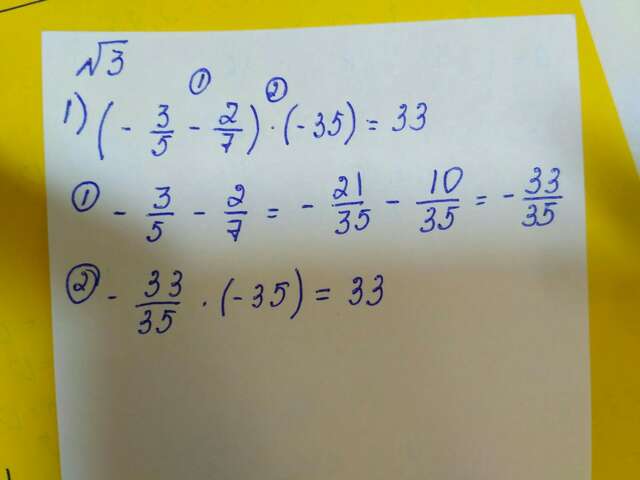 √3
1) (- 3/5 - 2/7) · (-35) = 33
① ②
① - 3/5 - 2/7 = - 21/35 - 10/35 = - 33/35
② - 33/35 · (-35) = 33